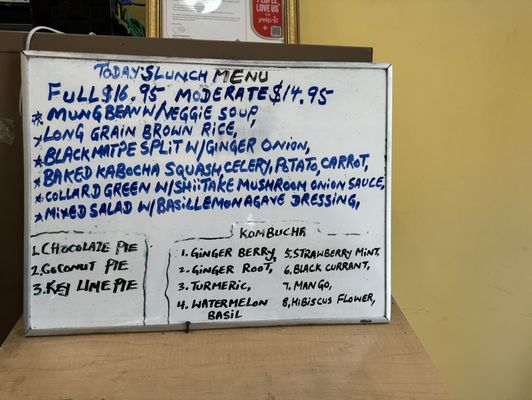 PEOPLE
LOVE US
yelp
TODAY'S LUNCH MENU
FULL $16.95 MODERATE $14.95
* MUNG BEAN W/VEGGIE SOUP,
* LONG GRAIN BROWN RICE,
* BLACK MATPE SPLIT W/GINGER ONION,
* BAKED KABOCHA SQUASH, CELERY, POTATO, CARROT,
* COLLARD GREEN W/SHIITAKE MUSHROOM ONION SAUCE,
* MIXED SALAD W/BASIL LEMON AGAVE DRESSING,
1. CHOCOLATE PIE
2. COCONUT PIE
3. KEY LIME PIE
KOMBUCHA
1. GINGER BERRY,
2. GINGER ROOT,
3. TURMERIC,
4. WATERMELON
BASIL
5. STRAWBERRY MINT.
6. BLACK CURRANT,
7. MANGO,
8, HIBISCUS FLOWER,